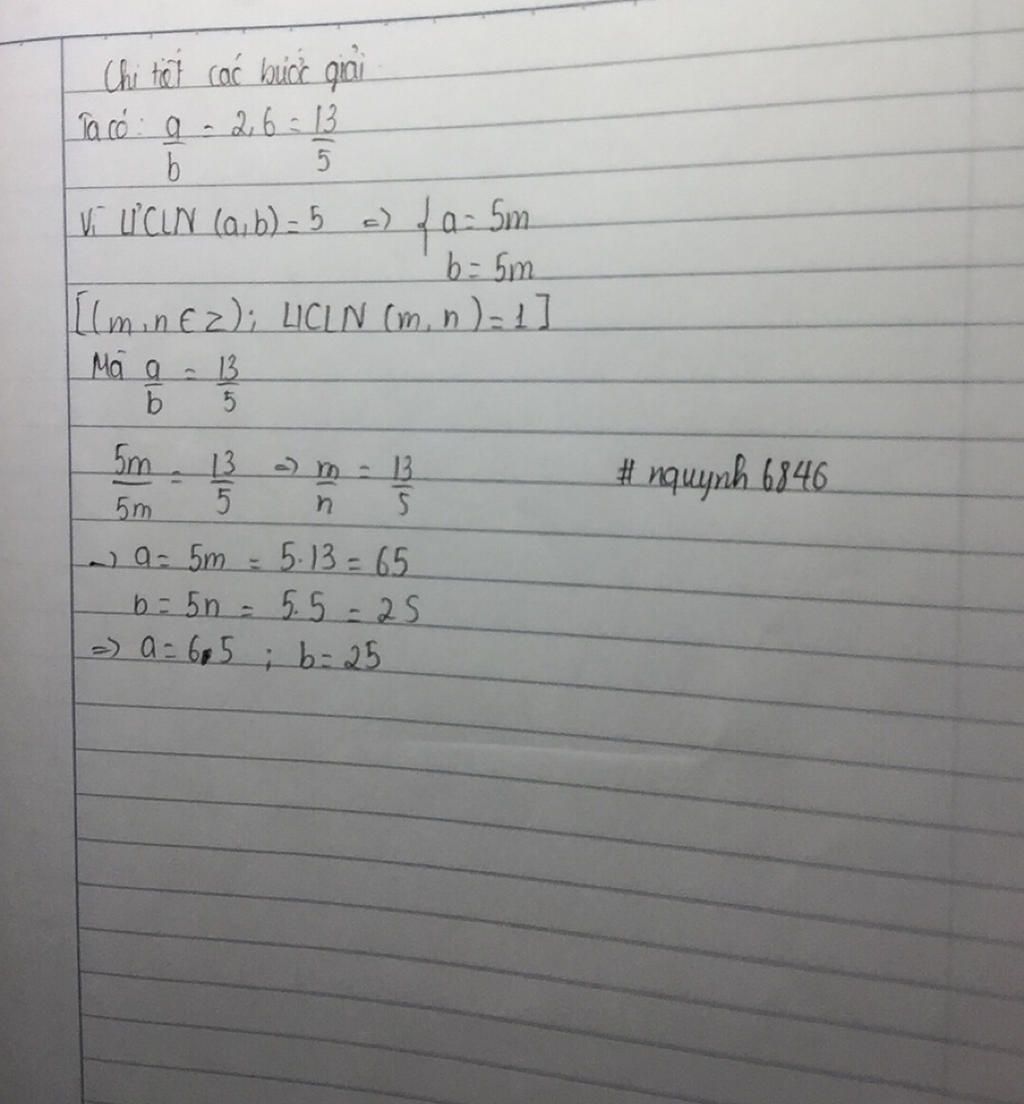 Chi tiết các bước giải
Ta có: a/b = 2,6 = 13/5
Vì ƯCLN (a,b) = 5 => { a = 5m
b = 5m
[(m,n ∈ Z); ƯCLN (m,n) = 1]
Mà a/b = 13/5
5m/5m = 13/5 => m/n = 13/5
# nquynh 6846
-> a = 5m = 5.13 = 65
b = 5n = 5.5 = 25
=> a = 65 ; b = 25